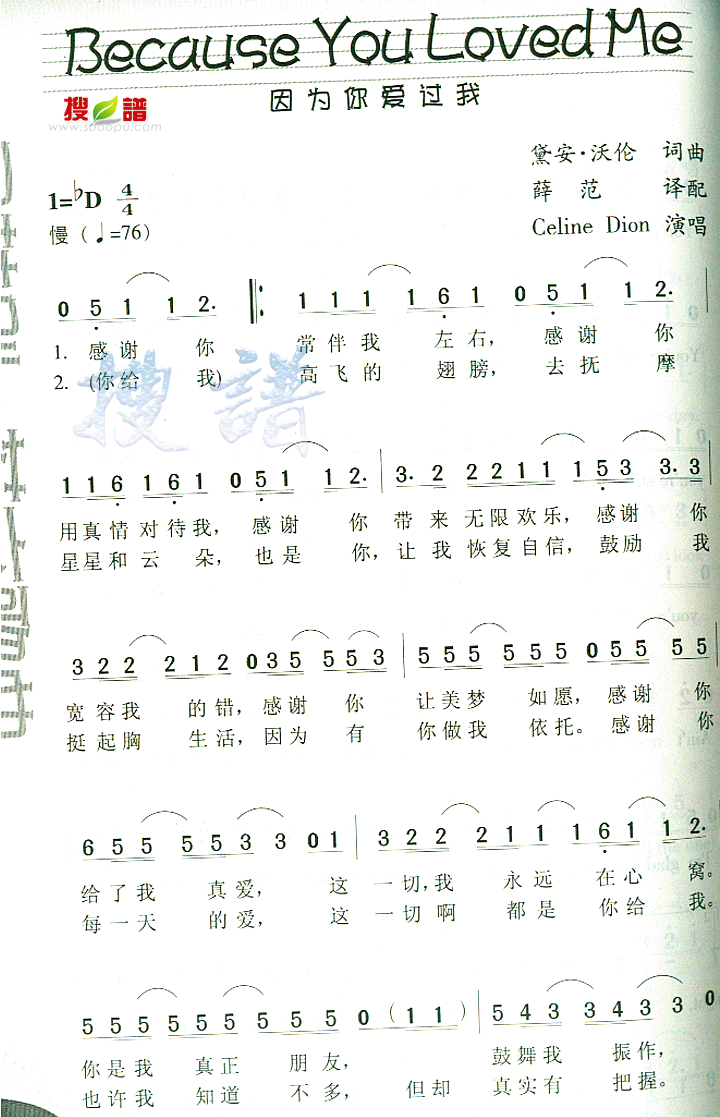 Because You Loved Me
搜谱
www.sooopu.com
因为你爱过我
黛安·沃伦 词曲
1=♭D 4/4
薛范 译配
慢（♩=76）
Celine Dion 演唱
0 5 1 1 2. 1 1 1 1 6 1 0 5 1 1 2.
1. 感谢 你 常伴我 左右， 感谢 你
2. (你给 我) 高飞的 翅膀， 去抚 摩
1 1 6 1 6 1 0 5 1 1 2. 3. 2 2 2 1 1 1 5 3 3. 3
用真情对待我， 感谢 你 带来无限欢乐， 感谢 你
星星和云朵， 也是 你，让我 恢复自信，鼓励 我
3 2 2 2 1 2 0 3 5 5 5 3 5 5 5 5 5 5 0 5 5 5 5
宽容我 的错，感谢 你 让美梦 如愿，感谢 你
挺起胸 生活，因为 有 你做我 依托。感谢 你
6 5 5 5 5 3 3 0 1 3 2 2 2 1 1 1 6 1 1 2.
给了我 真爱， 这一切，我 永远 在心 窝。
每一天 的爱， 这一切啊 都是 你给 我。
5 5 5 5 5 5 5 5 5 0 (1 1) 5 4 3 3 4 3 3 0
你是我 真正 朋友， 鼓舞我 振作，
也许我 知道 不多， 但却 真实有 把握。